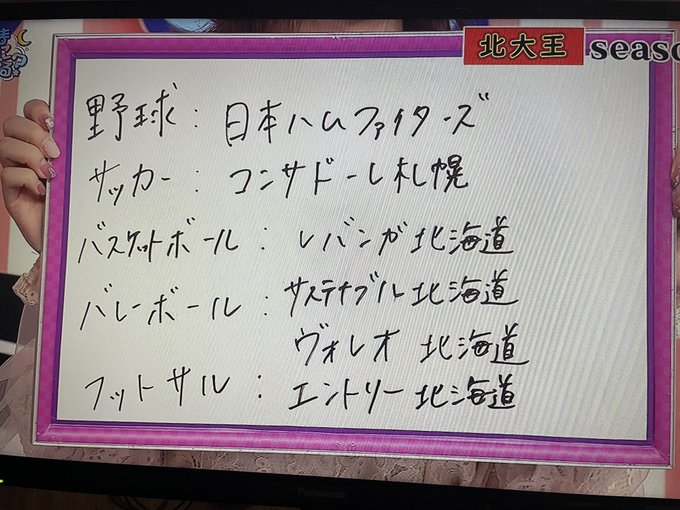 まっ
る?
北大王 seaso
野球：日本ハムファイターズ
サッカー：コンサドーレ札幌
バスケットボール：レバンガ北海道
バレーボール：サステナブル北海道
ヴォレオ北海道
フットサル：エントリー北海道
Panasonic